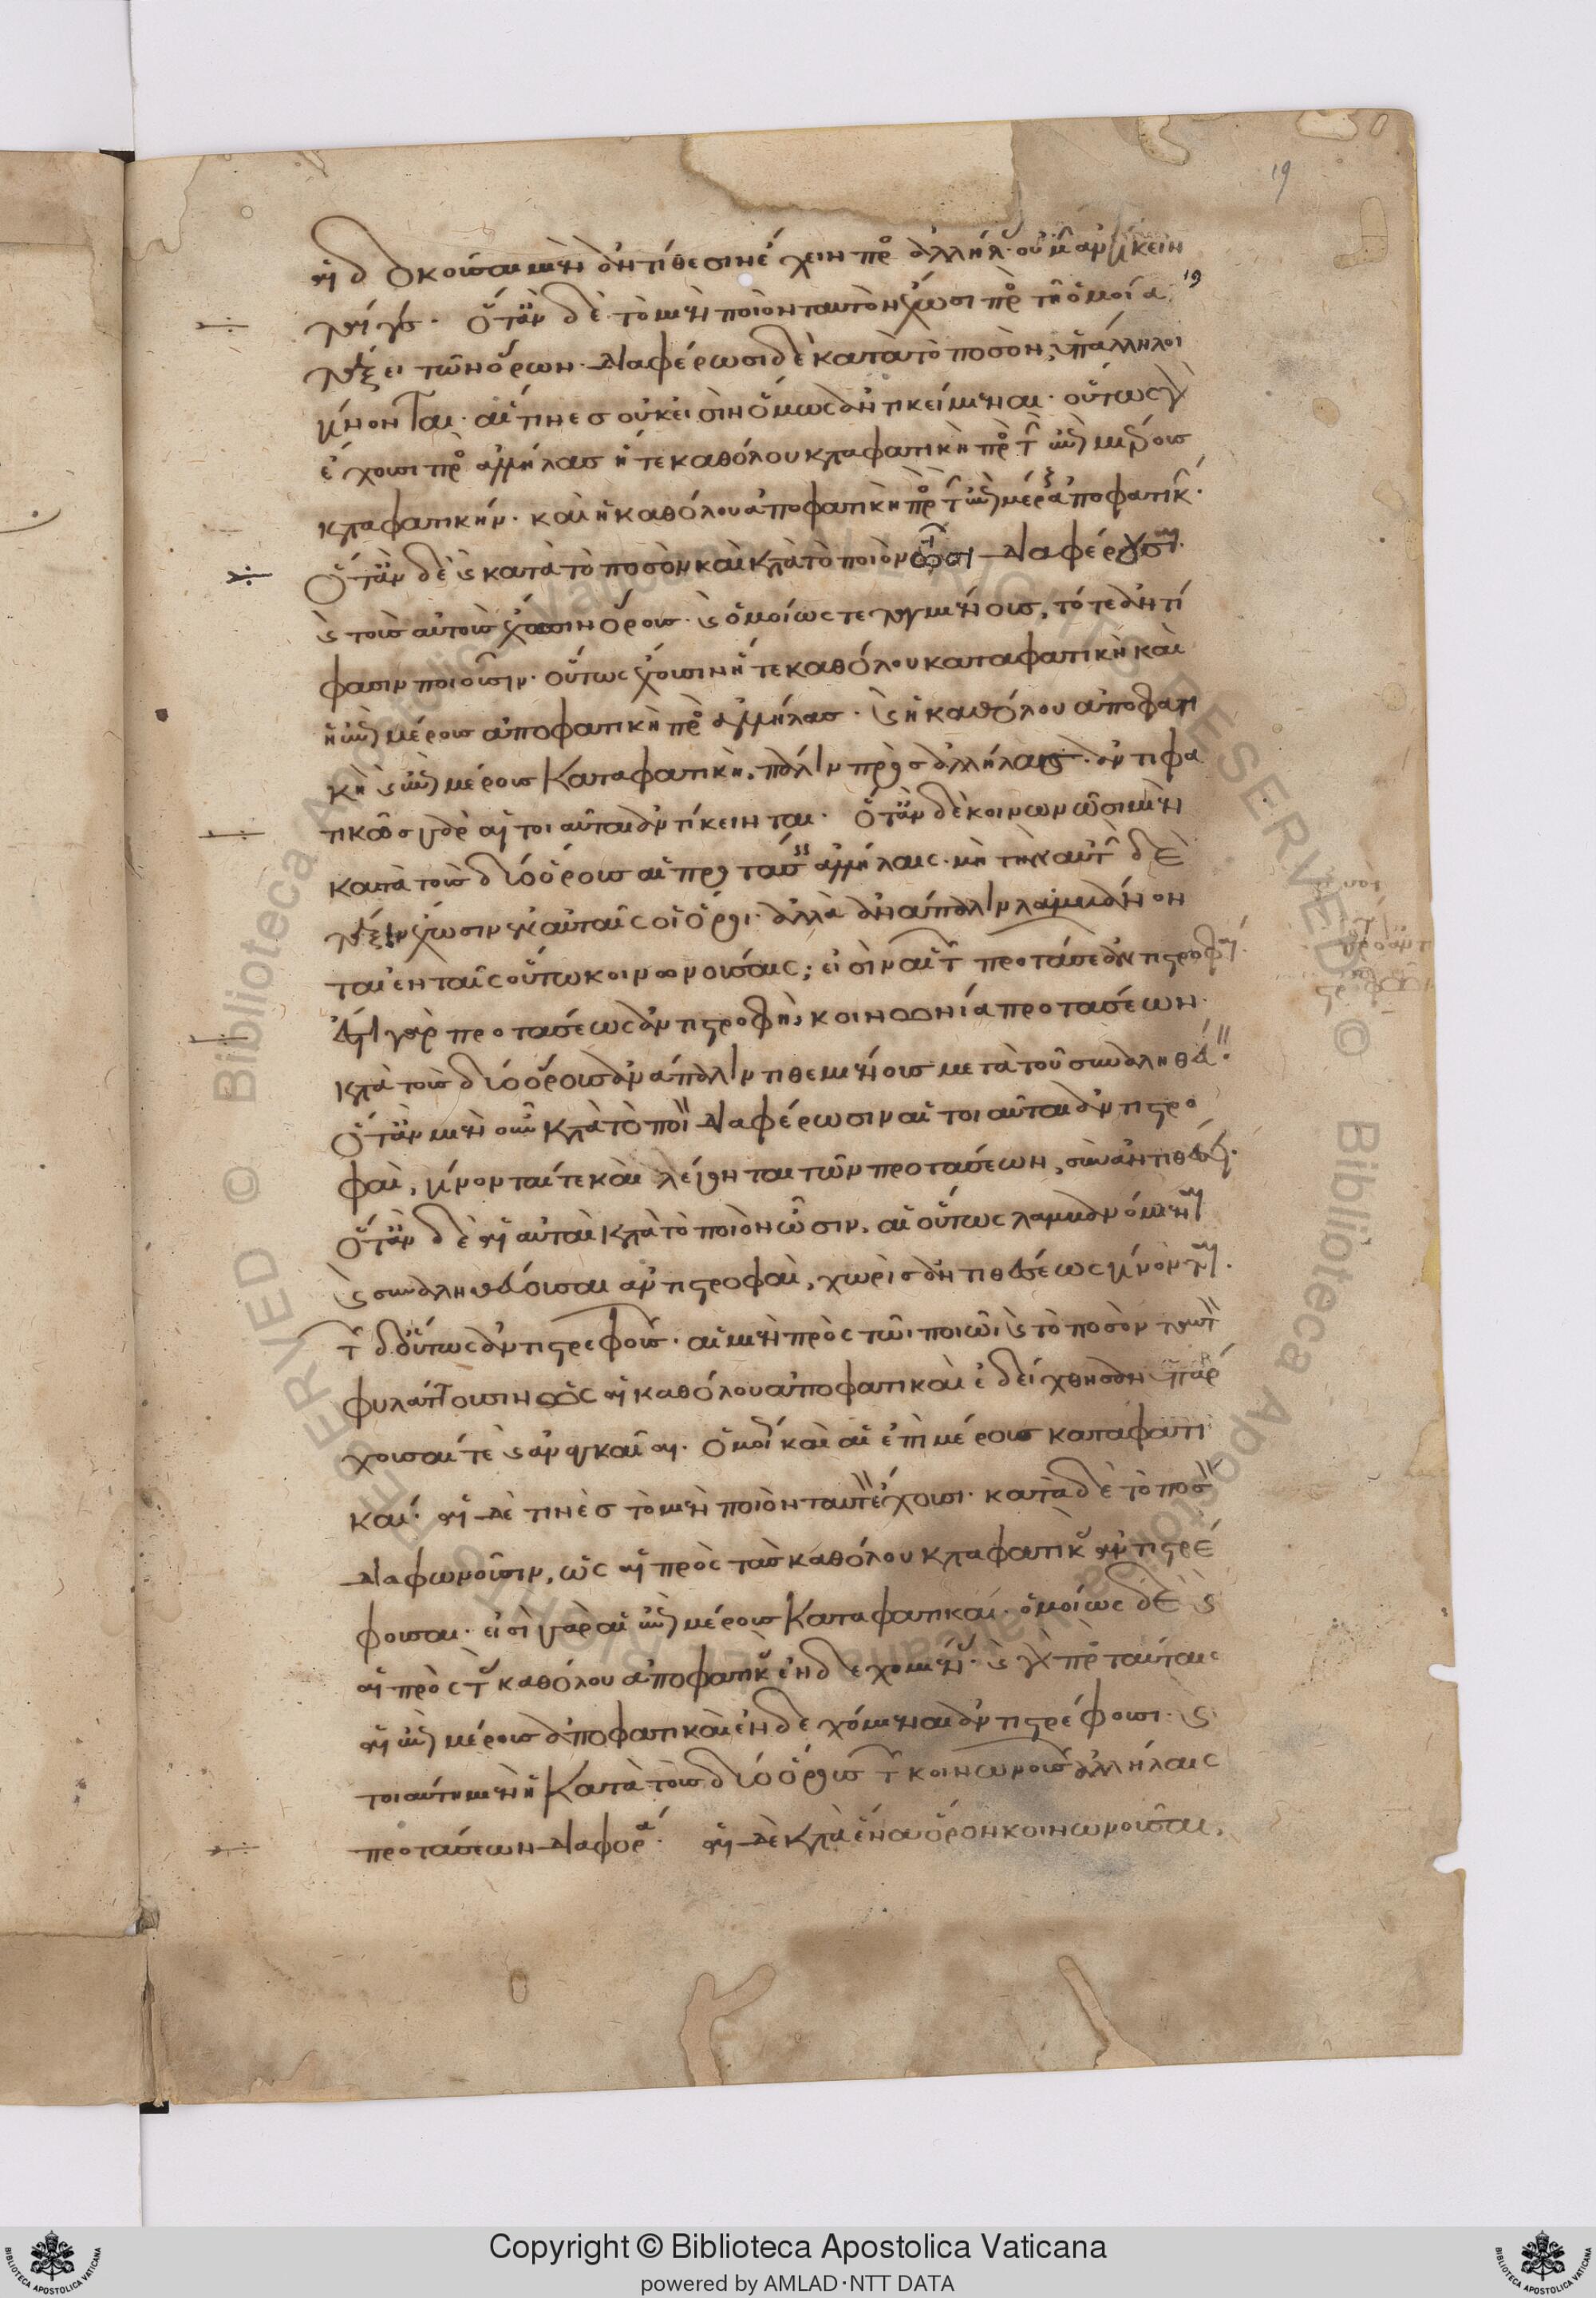 19
αἱ δοκοῦσαι μὲν ἀντίθεσιν ἔχειν πρὸς ἀλλήλας οὐ μὴν ἀντικείμεναι
γε. Ὅταν δὲ τὸ μὲν ποιὸν ταὐτὸν ἔχωσι πρὸς τῇ ὁμοίᾳ
τάξει τῶν ὅρων. διαφέρωσι δὲ κατὰ τὸ ποσὸν, ὑπάλληλοι
γίνονται. αἵτινες οὐκ εἰσὶν ὅμως ἀντικείμεναι. οὕτως γὰρ
ἔχουσι πρὸς ἀλλήλας ἥ τε καθόλου καταφατικὴ πρὸς τὴν ἐπὶ μέρους
καταφατικήν. καὶ ἡ καθόλου ἀποφατικὴ πρὸς τὴν ἐπὶ μέρους ἀποφατικήν.
Ὅταν δὲ καὶ κατὰ τὸ ποσὸν καὶ κατὰ τὸ ποιὸν ὦσι διαφέρουσαι
καὶ τοῖς αὐτοῖς χρῶνται ὅροις καὶ ὁμοίως τεταγμένοις, τότε ἀντί
φασιν ποιοῦσιν. οὕτως ἔχουσιν ἥ τε καθόλου καταφατικὴ καὶ
ἡ ἐπὶ μέρους ἀποφατικὴ πρὸς ἀλλήλας. καὶ ἡ καθόλου ἀποφατι
κὴ καὶ ἐπὶ μέρους καταφατικὴ, πάλιν πρὸς ἀλλήλας. ἀντιφα
τικῶς γὰρ αἱ τοιαῦται ἀντίκεινται. Ὅταν δὲ κοινωνῶσι μὲν
κατὰ τοὺς δύο ὅρους αἱ προτάσεις ἀλλήλαις. μὴ τὴν αὐτὴν δὲ
τάξιν ἔχωσιν ἐν αὐταῖς οἱ ὅροι. ἀλλὰ ἀνάπαλιν λαμβάνον
ται ἐν ταῖς οὕτω κοινωνούσαις, εἰσὶν αἱ τῶν προτάσεων ἀντιστροφαί.
ἔστι γὰρ προτάσεως ἀντιστροφὴ, κοινωνία προτάσεων
κατὰ τοὺς δύο ὅρους ἀνάπαλιν τιθεμένους μετὰ τοῦ συναληθεύειν.
Ὅταν μὲν οὖν κατὰ τὸ ποιὸν διαφέρωσιν αἱ τοιαῦται ἀντιστρο
φαὶ, γίνονταί τε καὶ λέγονται τῶν προτάσεων, σὺν ἀντιθέσει.
Ὅταν δὲ αἱ αὐταὶ κατὰ τὸ ποιὸν ὦσιν. αἱ οὕτως λαμβανόμεναι
καὶ συναληθεύουσαι ἀντιστροφαὶ, χωρὶς ἀντιθέσεως γίνονται.
τῶν δὲ οὕτως ἀντιστρεφουσῶν. αἱ μὲν πρὸς τῶι ποιῶι καὶ τὸ ποσὸν ταὐτὸν
φυλάττουσιν ὡς αἱ καθόλου ἀποφατικαὶ ἐδείχθησαν ὑπάρ
χουσαί τε καὶ ἀναγκαῖαι. ὁμοίως καὶ αἱ ἐπὶ μέρους καταφατι
καί. αἱ δέ τινες τὸ μὲν ποιὸν ταὐτὸν ἔχουσι. κατὰ δὲ τὸ ποσὸν
διαφωνοῦσιν, ὡς αἱ πρὸς τὰς καθόλου καταφατικὰς ἀντιστρέ
φουσαι. εἰσὶ γὰρ αἱ ἐπὶ μέρους καταφατικαί. ὁμοίως δὲ καὶ
αἱ πρὸς τὰς καθόλου ἀποφατικὰς ἐνδεχομένας. καὶ γὰρ πρὸς ταύτας
αἱ ἐπὶ μέρους ἀποφατικαὶ ἐνδεχόμεναι ἀντιστρέφουσι. καὶ
τοιαύτη μὲν ἡ κατὰ τοὺς δύο ὅρους τῶν κοινωνουσῶν ἀλλήλαις
προτάσεων διαφορά. αἱ δὲ κατὰ ἕνα ὅρον κοινωνοῦσαι,
Copyright © Biblioteca Apostolica Vaticana
powered by AMLAD·NTT DATA